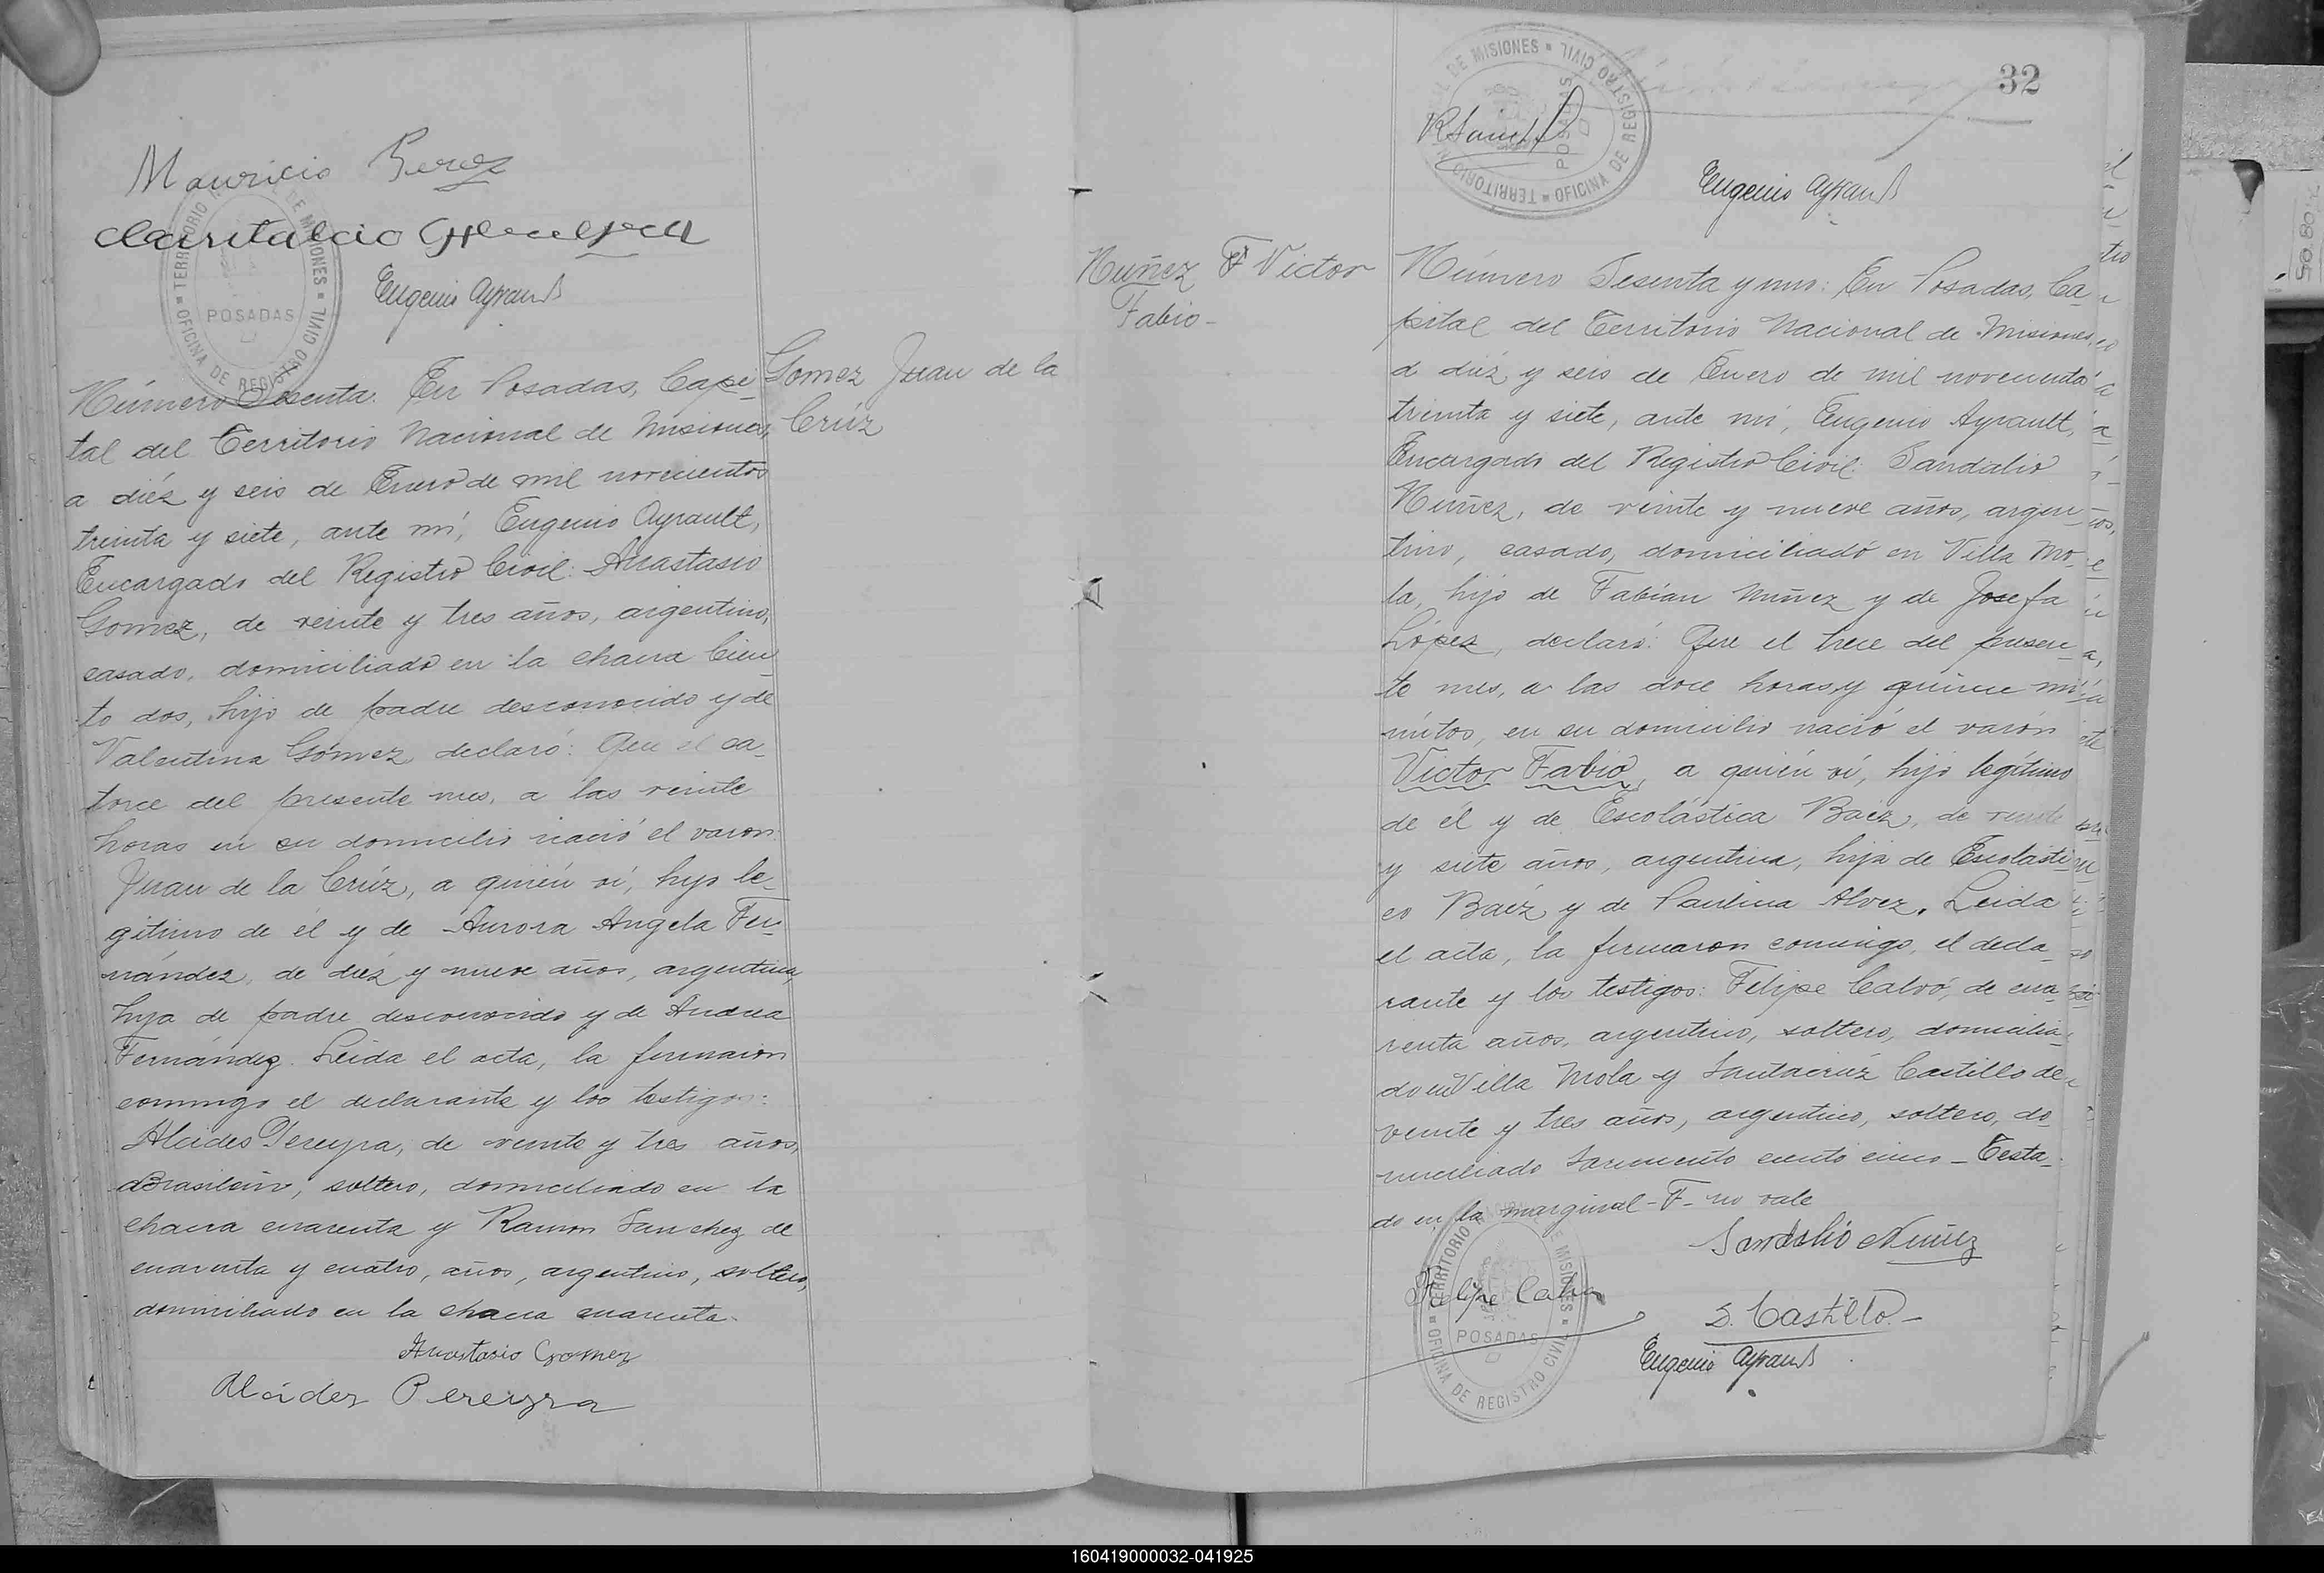 Mauricio Perez
Eugenio Ayrault
TERRITORIO DE MISIONES OFICINA DE REGISTRO CIVIL POSADAS
Gomez Juan de la
Crúz
Número Sesenta. En Posadas, Capi
tal del Territorio Nacional de Misiones,
a diéz y seis de Enero de mil novecientos
treinta y siete, ante mí, Eugenio Ayrault,
Encargado del Registro Civil: Anastasio
Gomez, de veinte y tres años, argentino,
casado, domiciliado en la chacra Cien
to dos, hijo de padre desconocido y de
Valentina Gómez declaró: Que el ca-
torce del presente mes, a las veinte
horas en su domicilio nació el varon
Juan de la Crúz, a quién ví, hijo le-
gítimo de él y de Aurora Angela Fer-
nández, de diéz y nueve años, argentina,
hija de padre desconocido y de Andrea
Fernández. Leida el acta, la firmaron
conmigo el declarante y los testigos:
Alcides Pereyra, de veinte y tres años,
Brasilero, soltero, domiciliado en la
chacra cuarenta y Ramon Sanchez de
cuarenta y cuatro, años, argentino, soltero,
domiciliado en la chacra cuarenta.
Anastasio Gomez
Alcides Pereyra
32
TERRITORIO DE MISIONES OFICINA DE REGISTRO CIVIL POSADAS
Eugenio Ayrault
Nuñez F Victor
Fabio-
Número Sesenta y uno: En Posadas, Ca
pital del Territorio Nacional de Misiones,
a diéz y seis de Enero de mil novecientos
treinta y siete, ante mí, Eugenio Ayrault,
Encargado del Registro Civil: Sandalio
Nuñez, de veinte y nueve años, argen-
tino, casado, domiciliado en Villa Mo-
la, hijo de Fabian Nuñez y de Josefa
López, declaró: Que el trece del presen-
te mes, a las doce horas y quince mi-
nutos, en su domicilio nació el varón
Victor Fabio, a quién ví, hijo legítimo
de él y de Escolástica Baez, de veinte
y siete años, argentina, hija de Escolásti-
co Baéz y de Paulina Alvez. Leida
el acta, la firmaron conmigo, el decla-
rante y los testigos: Felipe Calvó, de cua-
renta años, argentino, soltero, domicilia-
do en Villa Mola y Santacrúz Castillo de
veinte y tres años, argentino, soltero, do
miciliado Sarmiento ciento cinco - Testa-
do en la marginal - F - no vale
Sandalio Nuñez
Felipe Calvo
S. Castillo.-
Eugenio Ayrault
TERRITORIO DE MISIONES OFICINA DE REGISTRO CIVIL POSADAS
160419000032-041925